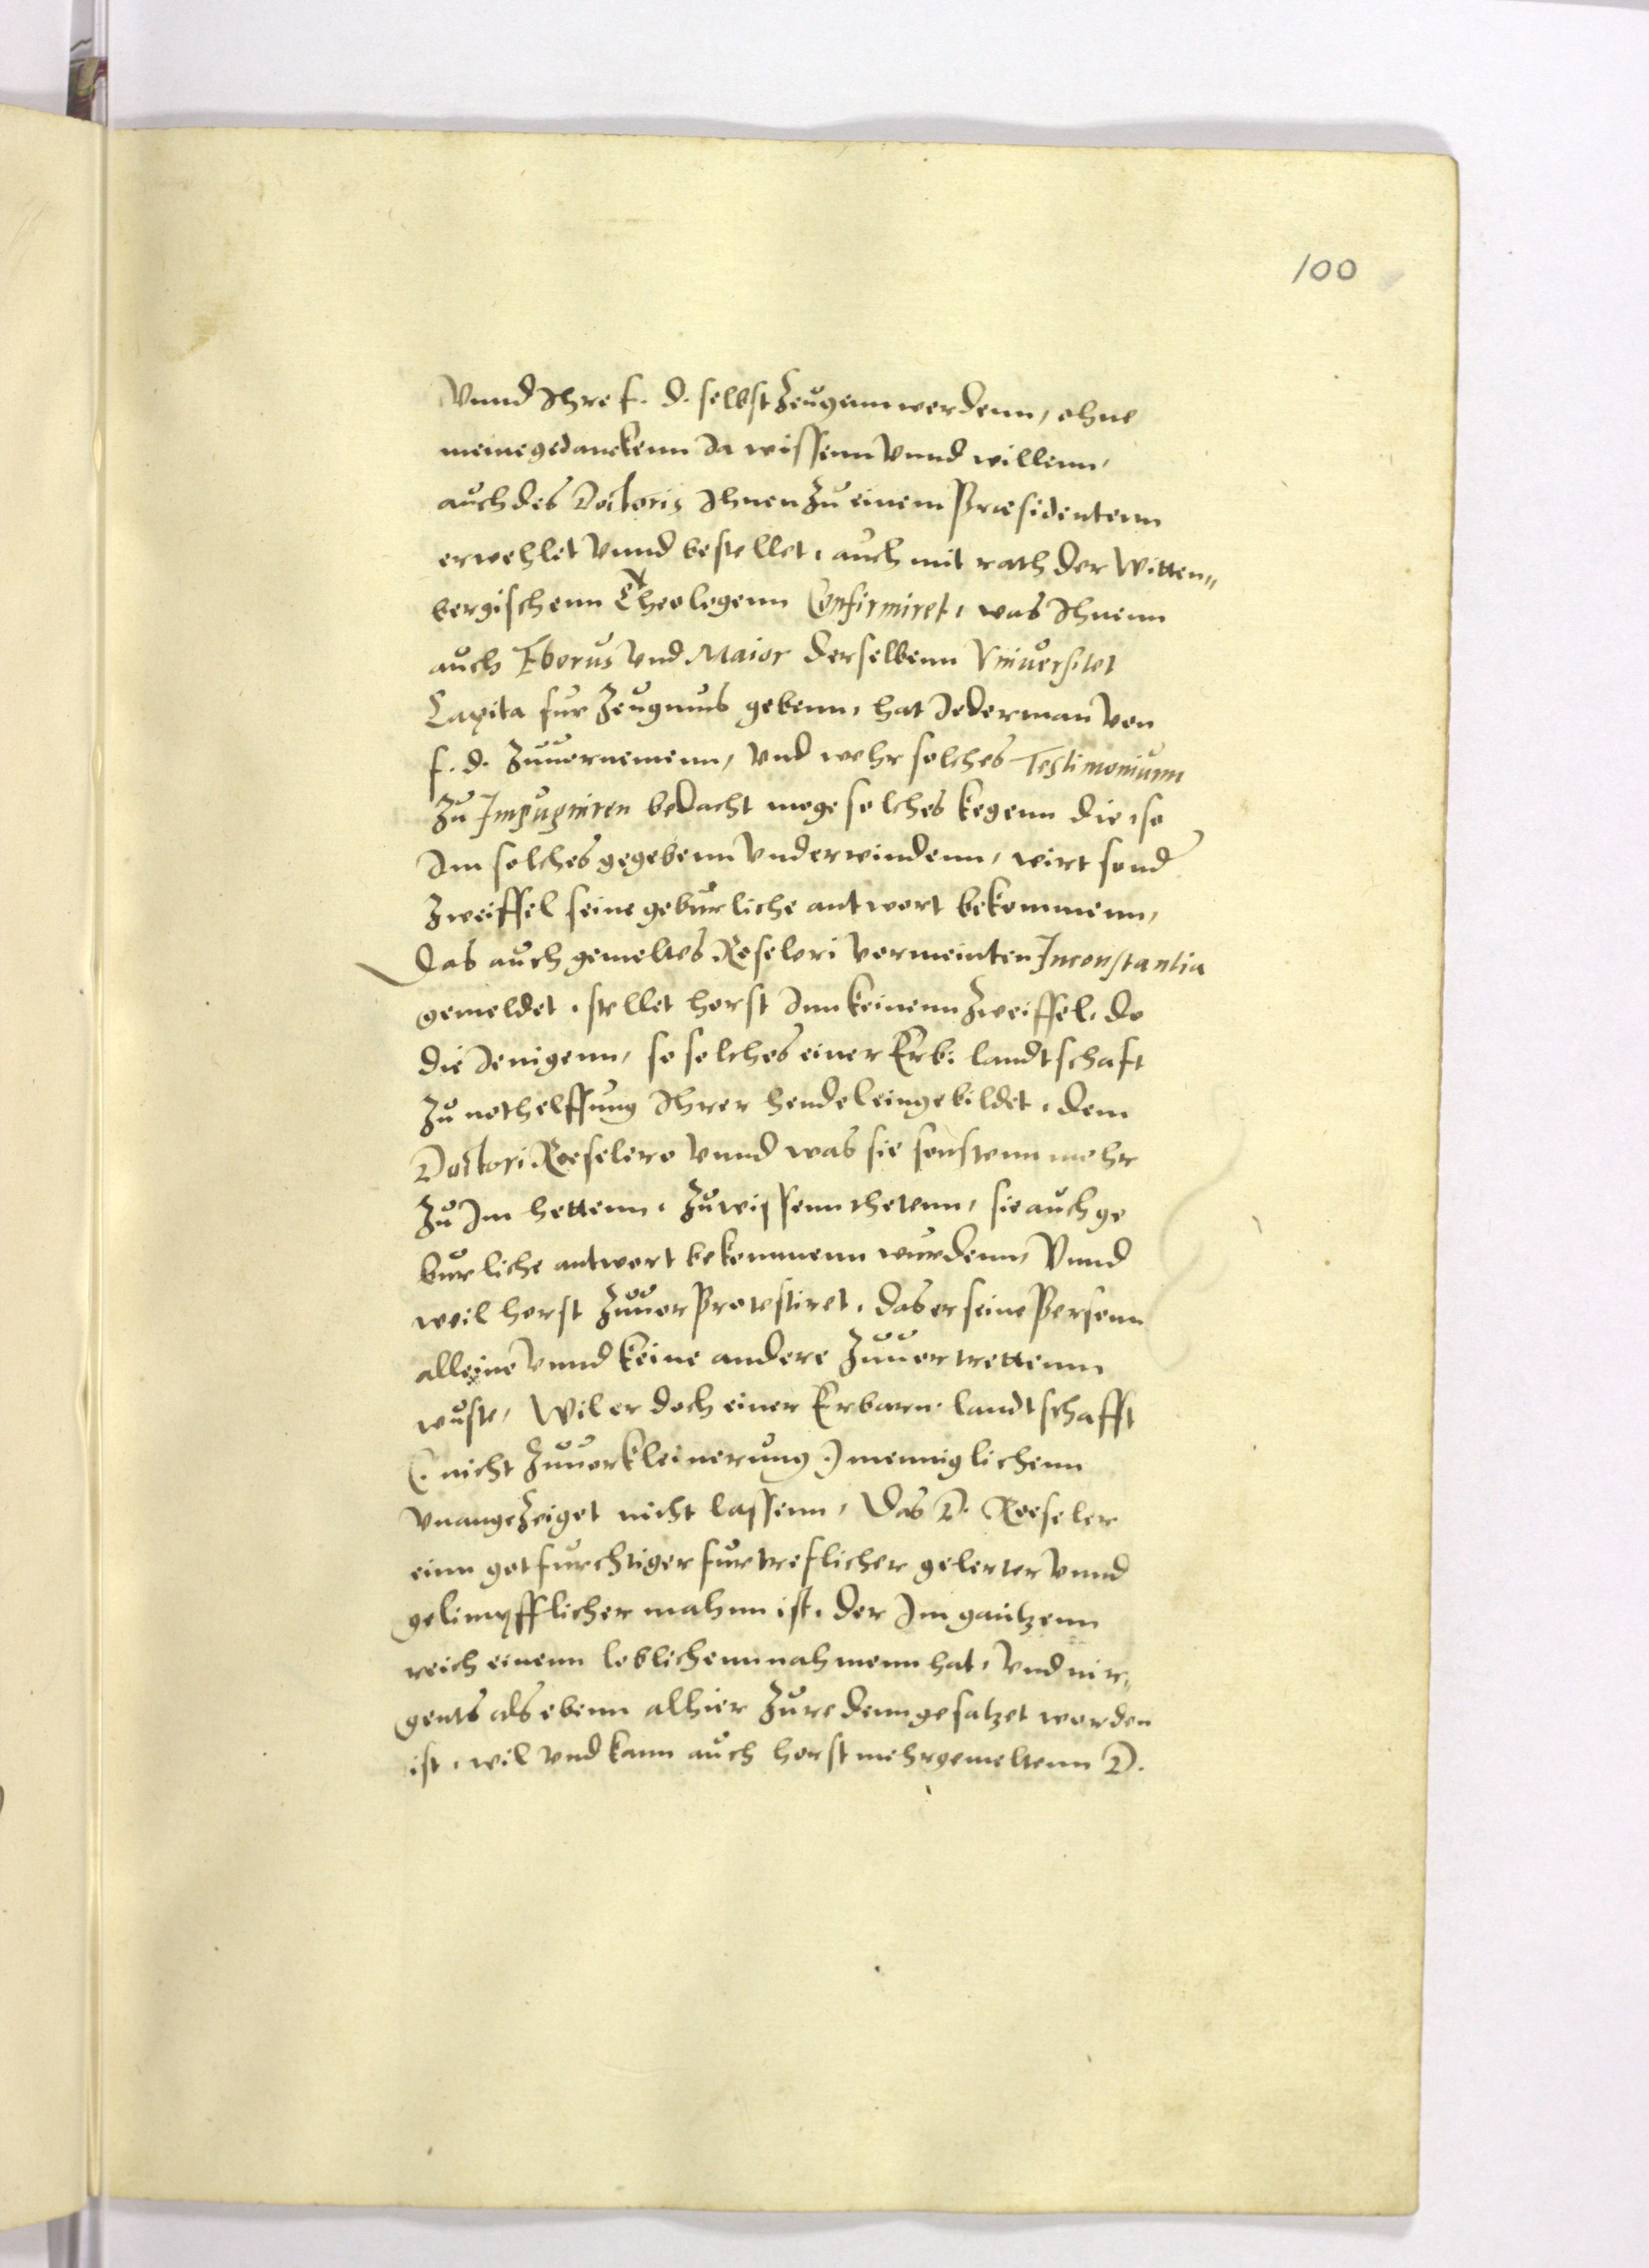 100
Vnnd Ihre f. d. selbst Zeugenn werdenn, ohne
meine gedanckenn Ja wissenn Vnnd willenn,
auch des Doctoris Ihnen Zu einem Præsidentenn
erwehlet Vnnd bestellet, auch mit rath der Witten„
bergischenn Theologenn Confirmiret, was Ihnenn
auch Eberus Vnd Maior derselbenn Vniuersitet
Capita fur Zeugnus gebenn, hat Jederman von
f. d. Zuuornemenn, Vnd wehr solches Testimonium
Zu Impugniren bedacht moge solches kegenn die, so
Im solches gegebenn Vnderwindenn, wirt sond
Zweiffel seine geburliche antwort bekommenn,
Das auch gemeltes Reseleri vermeinten Inconstantia
gemeldet, stellet horst Inn keinenn Zweiffel, do
die Jenigenn, so solches einer Erb. landtschaft
Zu nothelffung Ihrer hendel eingebildet, dem
Doctori Roeselero Vnnd was sie sonstenn mehr
Zu Im hettenn, Zuwissenn thetenn, sie auch ge
burliche antwort bekommenn wurdenn, Vnnd
weil horst Zuuor Protestiret, das er seine Personn
alleine Vnnd keine andere Zuuertrettenn
wuste, Wil er doch einer Erbarn landtschafft
(. nicht Zuuorkleinerung .) menniglichenn
Vnangezeiget nicht lassenn, Das D. Roeseler
einn gotfurchtiger furtreflicher gelerter Vnnd
gelimpfflicher mahnn ist, der Im gantzenn
reich einenn loblichenn nahmenn hat, Vnd nir„
gents als ebenn alhier Zuredenn gesatzet worden
ist, wil Vnd kann auch horst mehrgemeltenn D.